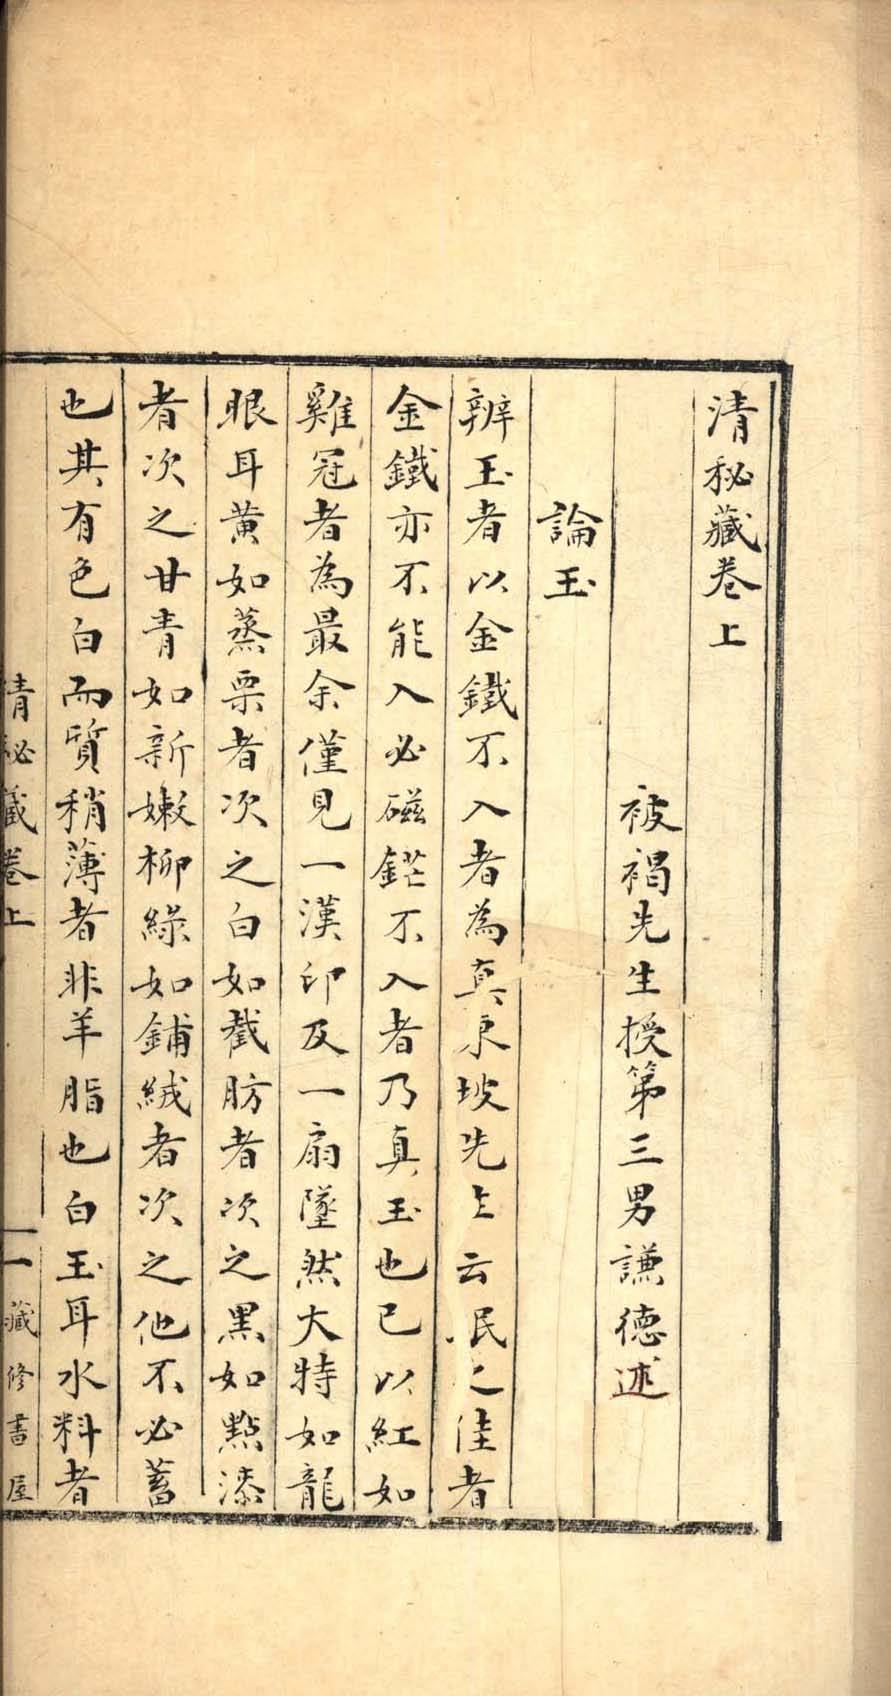 清秘藏卷上
被褐先生授第三男謙德述
論玉
辨玉者以金鐵不入者為真東坡先生云珉之佳者
金鐵亦不能入必磁鋩不入者乃真玉也已以紅如
雞冠者為最余僅見一漢印及一扇墜然大特如龍
眼耳黄如蒸栗者次之白如截肪者次之黑如點漆
者次之甘青如新嫩柳綠如鋪絨者次之他不必蓄
也其有色白而質稍薄者非羊脂也白玉耳水料者
清秘藏卷上 一 藏修書屋